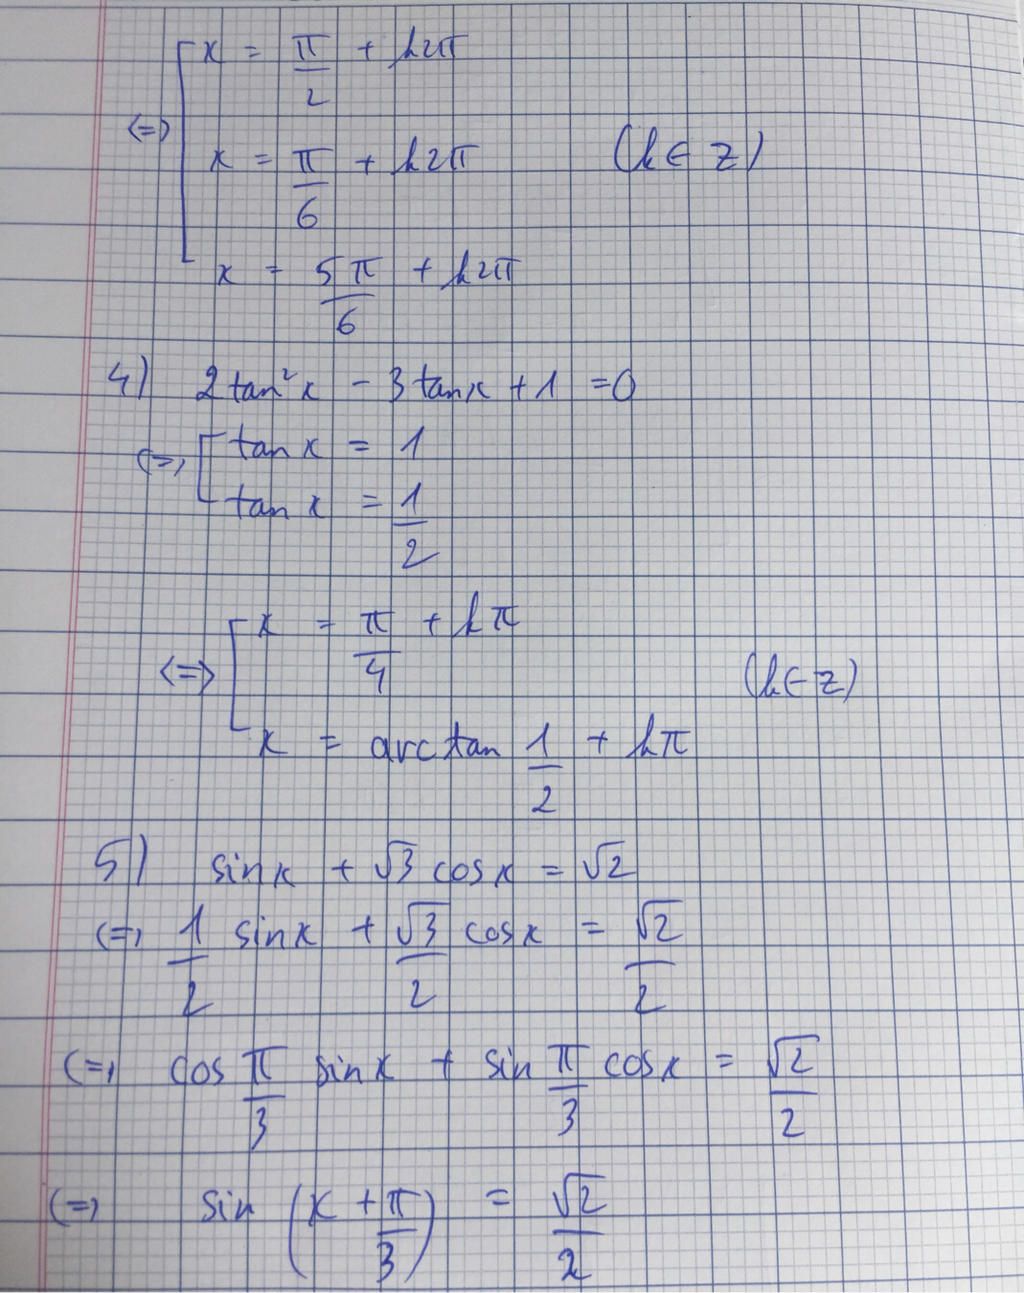 x = π/2 + k2π
<=> x = π/6 + k2π (k ∈ Z)
x = 5π/6 + k2π
4) 2tan²x - 3tanx + 1 = 0
<=> tan x = 1
tan x = 1/2
x = π/4 + kπ
<=> (k ∈ Z)
x = arctan 1/2 + kπ
5) sinx + √3 cosx = √2
<=> 1/2 sinx + √3/2 cosx = √2/2
<=> cos π/3 sinx + sin π/3 cosx = √2/2
<=> sin (x + π/3) = √2/2